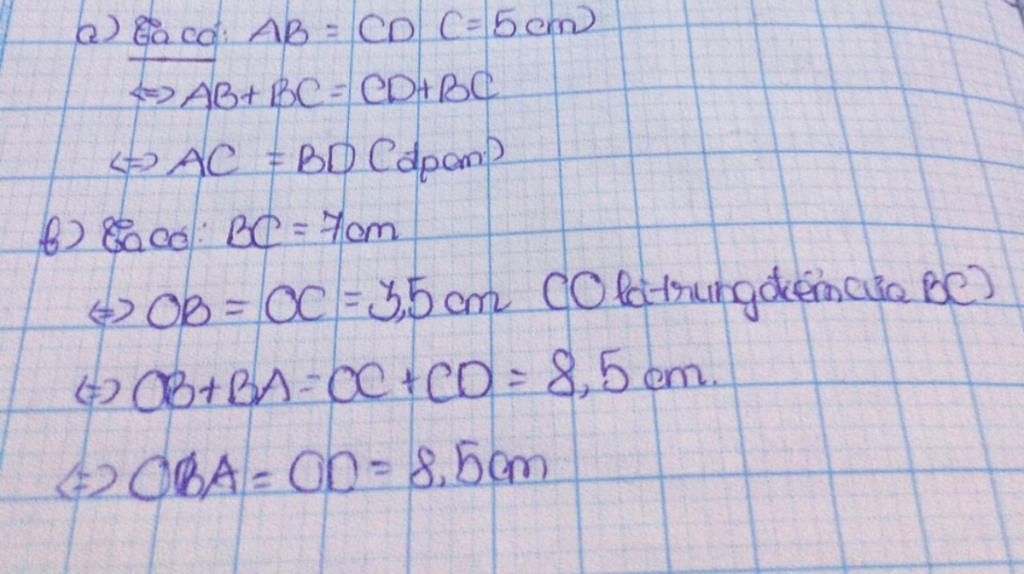 a) Ta có: AB = CD (= 5cm)
<=> AB + BC = CD + BC
<=> AC = BD (đpcm)
b) Ta có: BC = 7cm
<=> OB = OC = 3,5 cm (O là trung điểm của BC)
<=> OB + BA = OC + CD = 8,5 cm.
<=> OBA = OD = 8,5cm